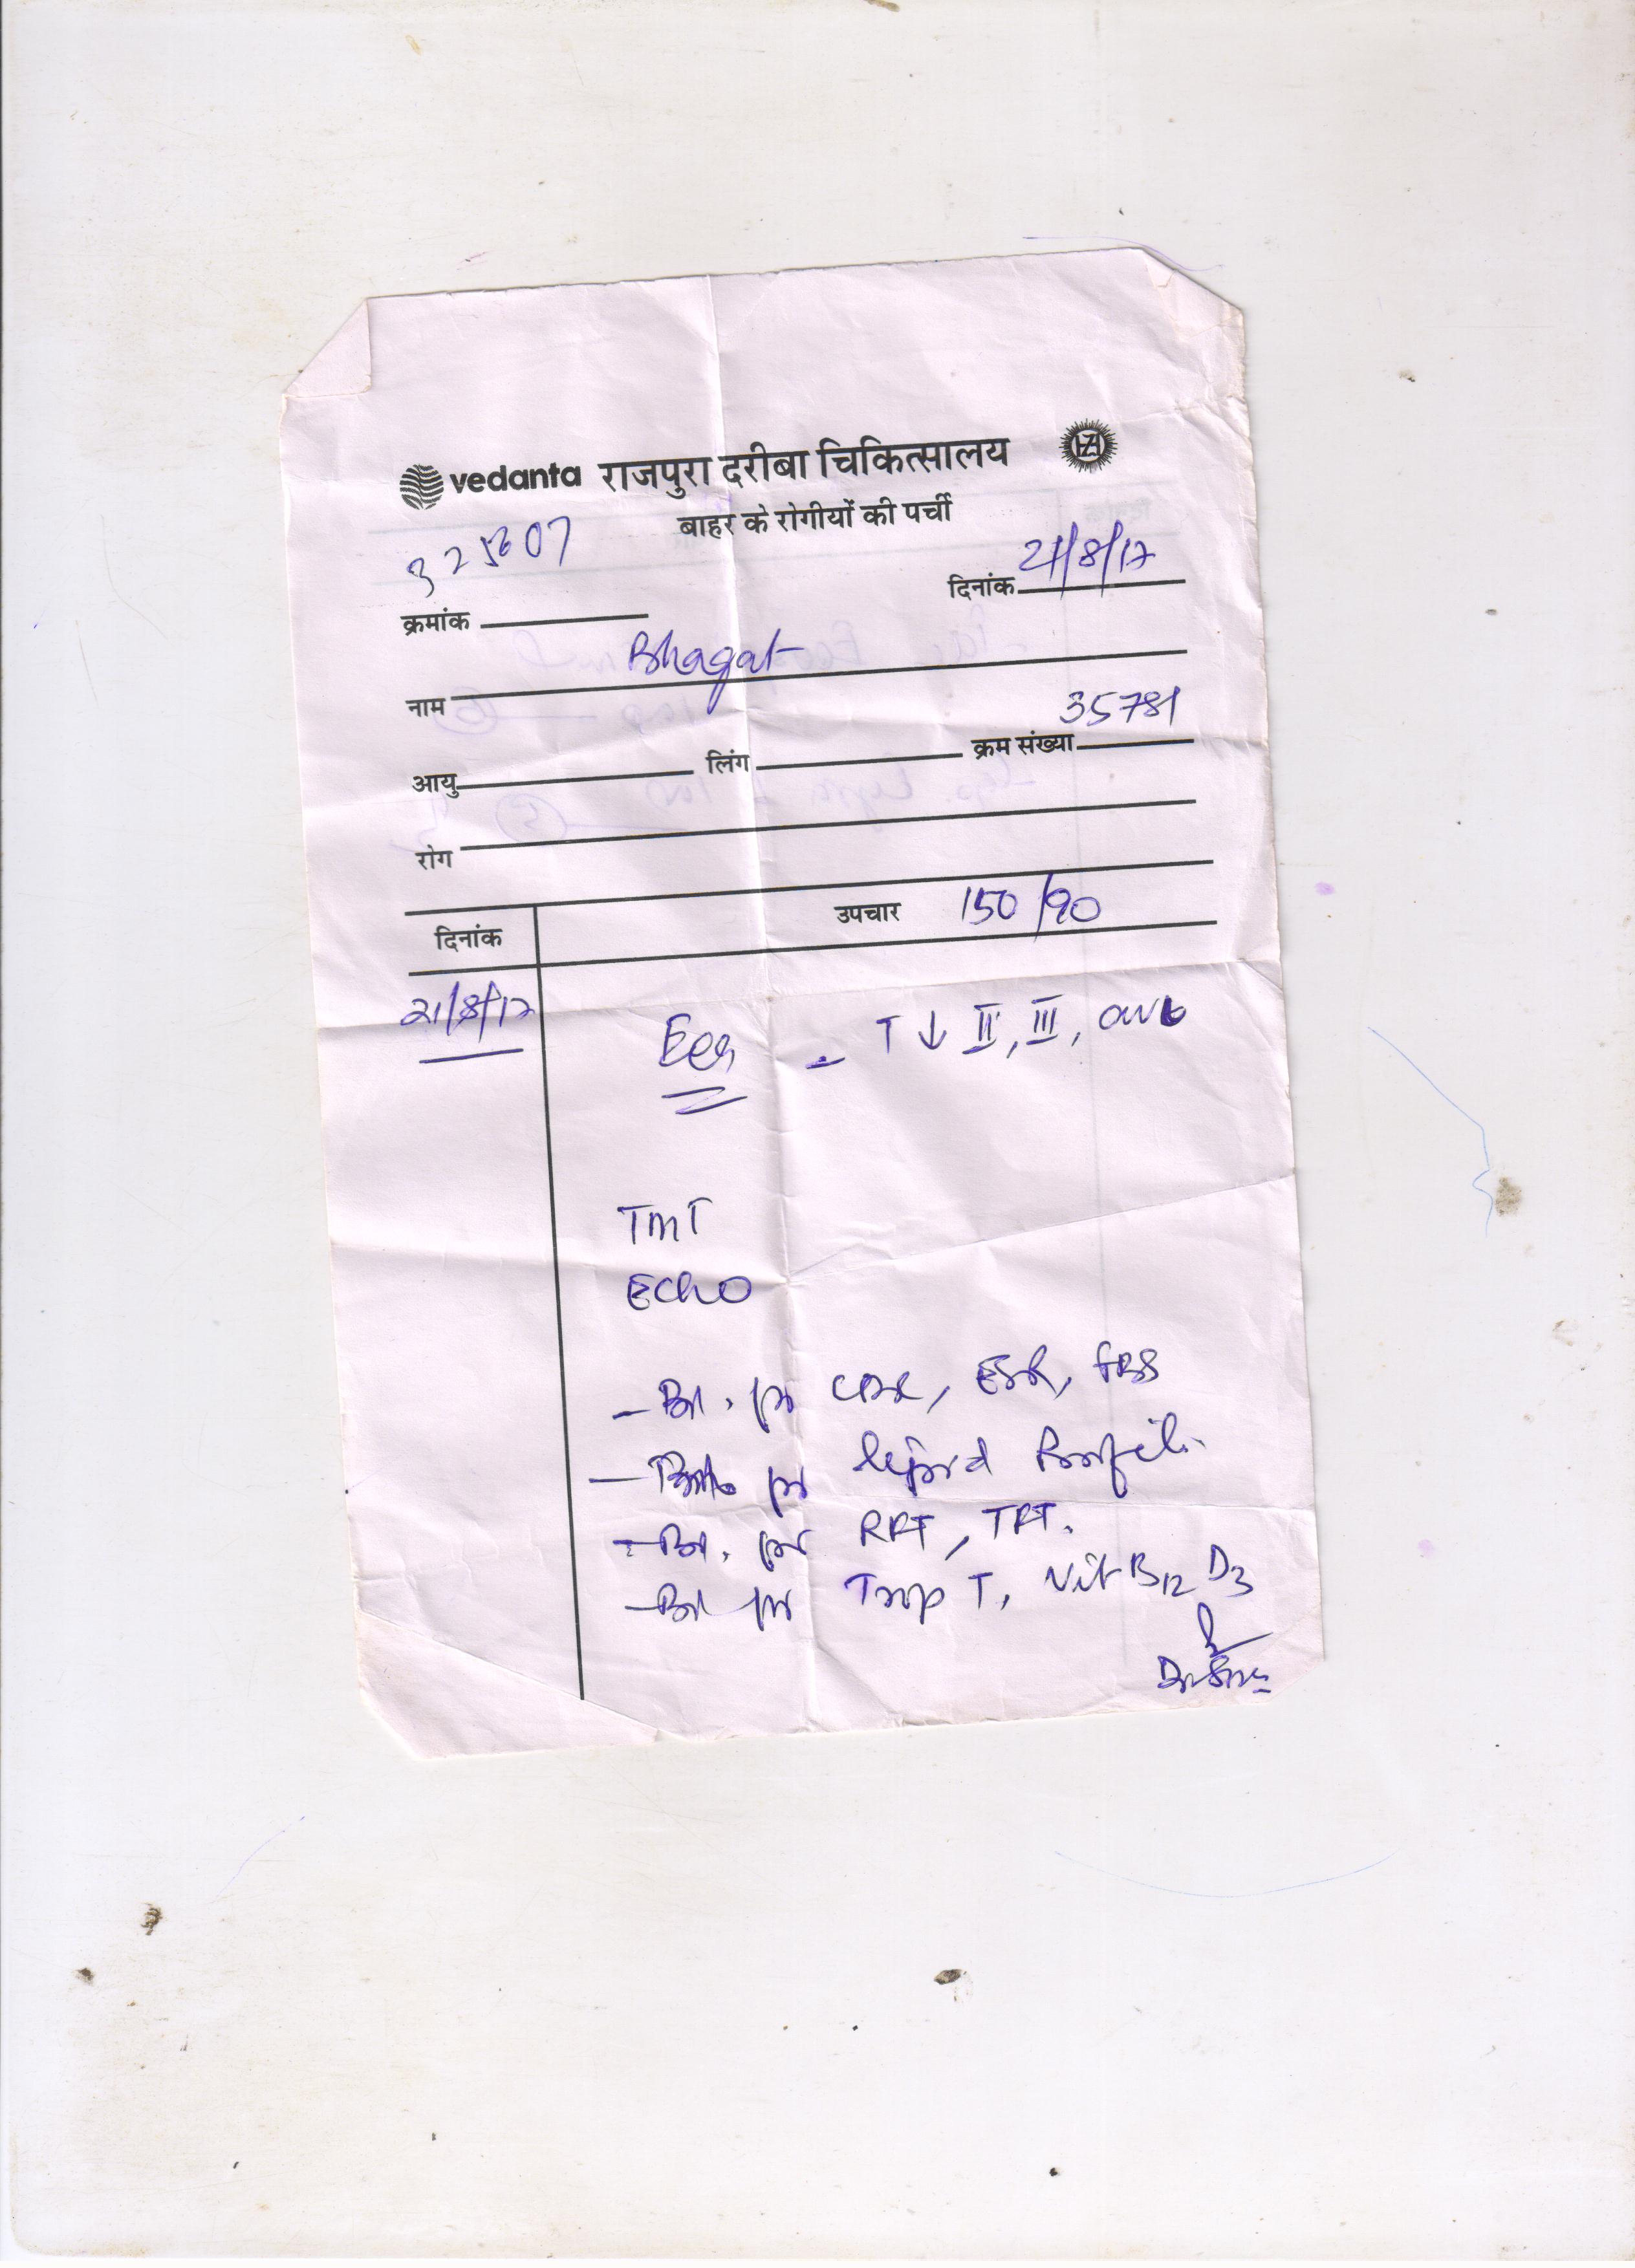 vedanta राजपुरा दरीबा चिकित्सालय
बाहर के रोगीयों की पर्ची
दिनांक 21/8/17
क्रमांक
नाम Bhagat
आयु लिंग क्रम संख्या 35781
रोग
दिनांक उपचार 150/90
21/8/17
T ↓ II, III, avb
TMT
ECHO
- Bl. for CBC, ESR, FBS
- for Lipid Profile
- Bl. for RFT, TFT.
- Bl for Trop T, Vit B12 D3